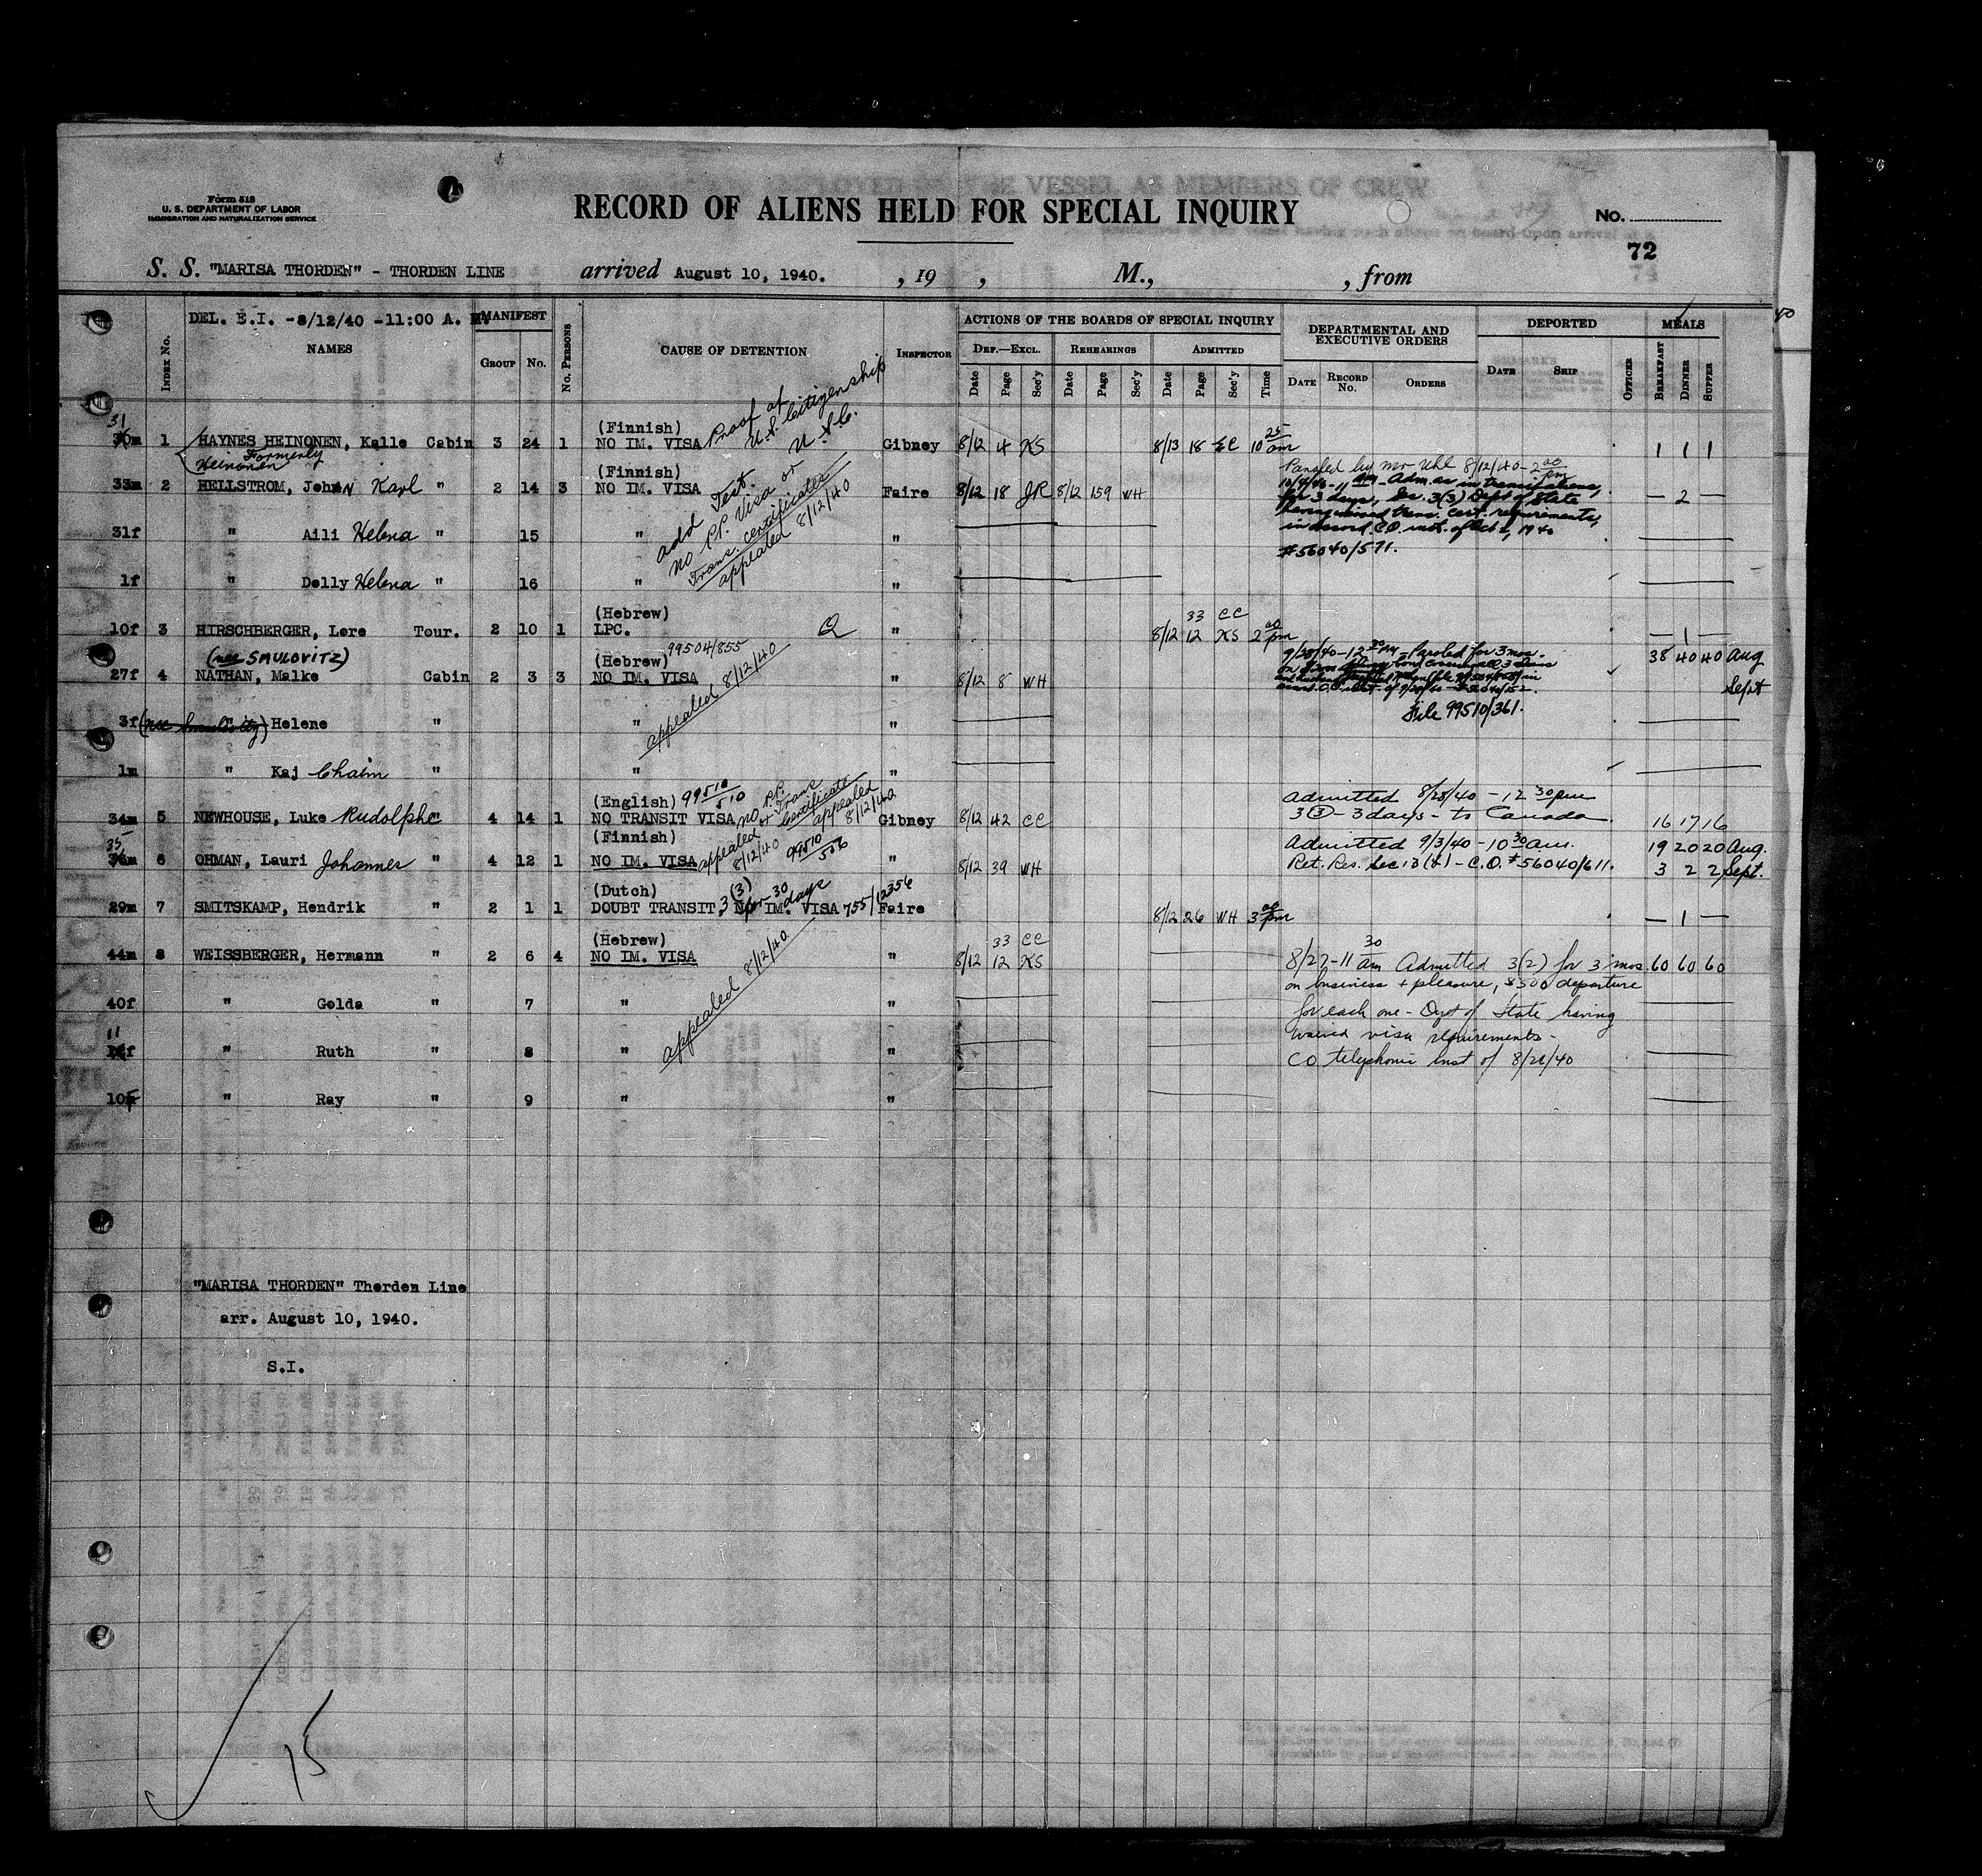 Form 518
U. S. DEPARTMENT OF LABOR
IMMIGRATION AND NATURALIZATION SERVICE
RECORD OF ALIENS HELD FOR SPECIAL INQUIRY
No.
72
S. S. "MARISA THORDEN" - THORDEN LINE arrived August 10, 1940. , 19 , M., , from
DEL. E.I. -8/12/40 -11:00 A. M.
Index No. NAMES MANIFEST Group No. No. Persons CAUSE OF DETENTION Inspector
ACTIONS OF THE BOARDS OF SPECIAL INQUIRY
Def.—Excl. Rehearings Admitted
Date Page Sec'y Date Page Sec'y Date Page Sec'y Time
DEPARTMENTAL AND EXECUTIVE ORDERS
Date Record No. Orders
DEPORTED
Date Ship Officer
MEALS
Breakfast Dinner Supper
31
30m 1 HAYNES HEINONEN, Kalle Cabin 3 24 1 (Finnish) NO IM. VISA Proof of U.S. Citizenship U.S.C. Gibney 8/12 4 KS 8/13 18 10 25 am 1 1 1
Formerly Heinonen
33m 2 HELLSTROM, Johan Karl " 2 14 3 (Finnish) NO IM. VISA Faire 8/12 18 JR 8/12 159 WH — 2 —
add Test. or
no P.P. Visa or
Trans. certificates
appealed 8/12/40
Paroled by Mr Uhl 8/12/40-2 00 pm
10/4/40-11 am-Adm. as in transit aliens,
for 3 days, Sec. 3(3) Dept of State
having waived trans. cert. requirements,
in accord. C.O. inst. of Oct 2, 1940
#56040/571.
31f " Aili Helena " 15 " "
1f " Dolly Helena " 16 " "
10f 3 HIRSCHBERGER, Lore Tour. 2 10 1 (Hebrew) LPC. " 33 CC 8/12 12 KS 2 00 pm — 1 —
(nee SMULOVITZ)
27f 4 NATHAN, Malke Cabin 2 3 3 (Hebrew) 99504/855 NO IM. VISA " 8/12 8 WH 38 40 40 Aug
Sept
appealed 8/12/40
9/28/40-12 30 PM-Paroled for 3 mos.
File 99510/361.
3f " Helene " " "
1m " Kaj Chaim " " "
34m 5 NEWHOUSE, Luke Rudolphe " 4 14 1 (English) 99510/510 NO TRANSIT VISA no P.P. or Trans Certificate appealed 8/12/40 Gibney 8/12 42 CC 16 17 16
Admitted 8/28/40 - 12 30 pm
3 (3) - 3 days - to Canada
35
36m 6 OHMAN, Lauri Johannes " 4 12 1 (Finnish) NO IM. VISA appealed 8/12/40 99510/506 " 8/12 39 WH 19 20 20 Aug.
3 2 2 Sept.
Admitted 9/3/40 - 10 30 am.
Ret. Res. Sec 13(b) - C.O. #56040/611.
29m 7 SMITSKAMP, Hendrik " 2 1 1 (Dutch) DOUBT TRANSIT, NO IM. VISA 3(3) for 30 days 755/12356 Faire 8/12 26 WH 3 00 pm — 1 —
44m 8 WEISSBERGER, Hermann " 2 6 4 (Hebrew) NO IM. VISA " 33 CC 8/12 12 KS 60 60 60
appealed 8/12/40
8/27-11 30 am Admitted 3(2) for 3 mos.
on business + pleasure, $500 departure
for each one - Dept of State having
waived visa requirements -
CO telephonic inst of 8/26/40
40f " Golda " 7 " "
11
12f " Ruth " 8 " "
10f " Ray " 9 " "
"MARISA THORDEN" Thorden Line
arr. August 10, 1940.
S.I.
15